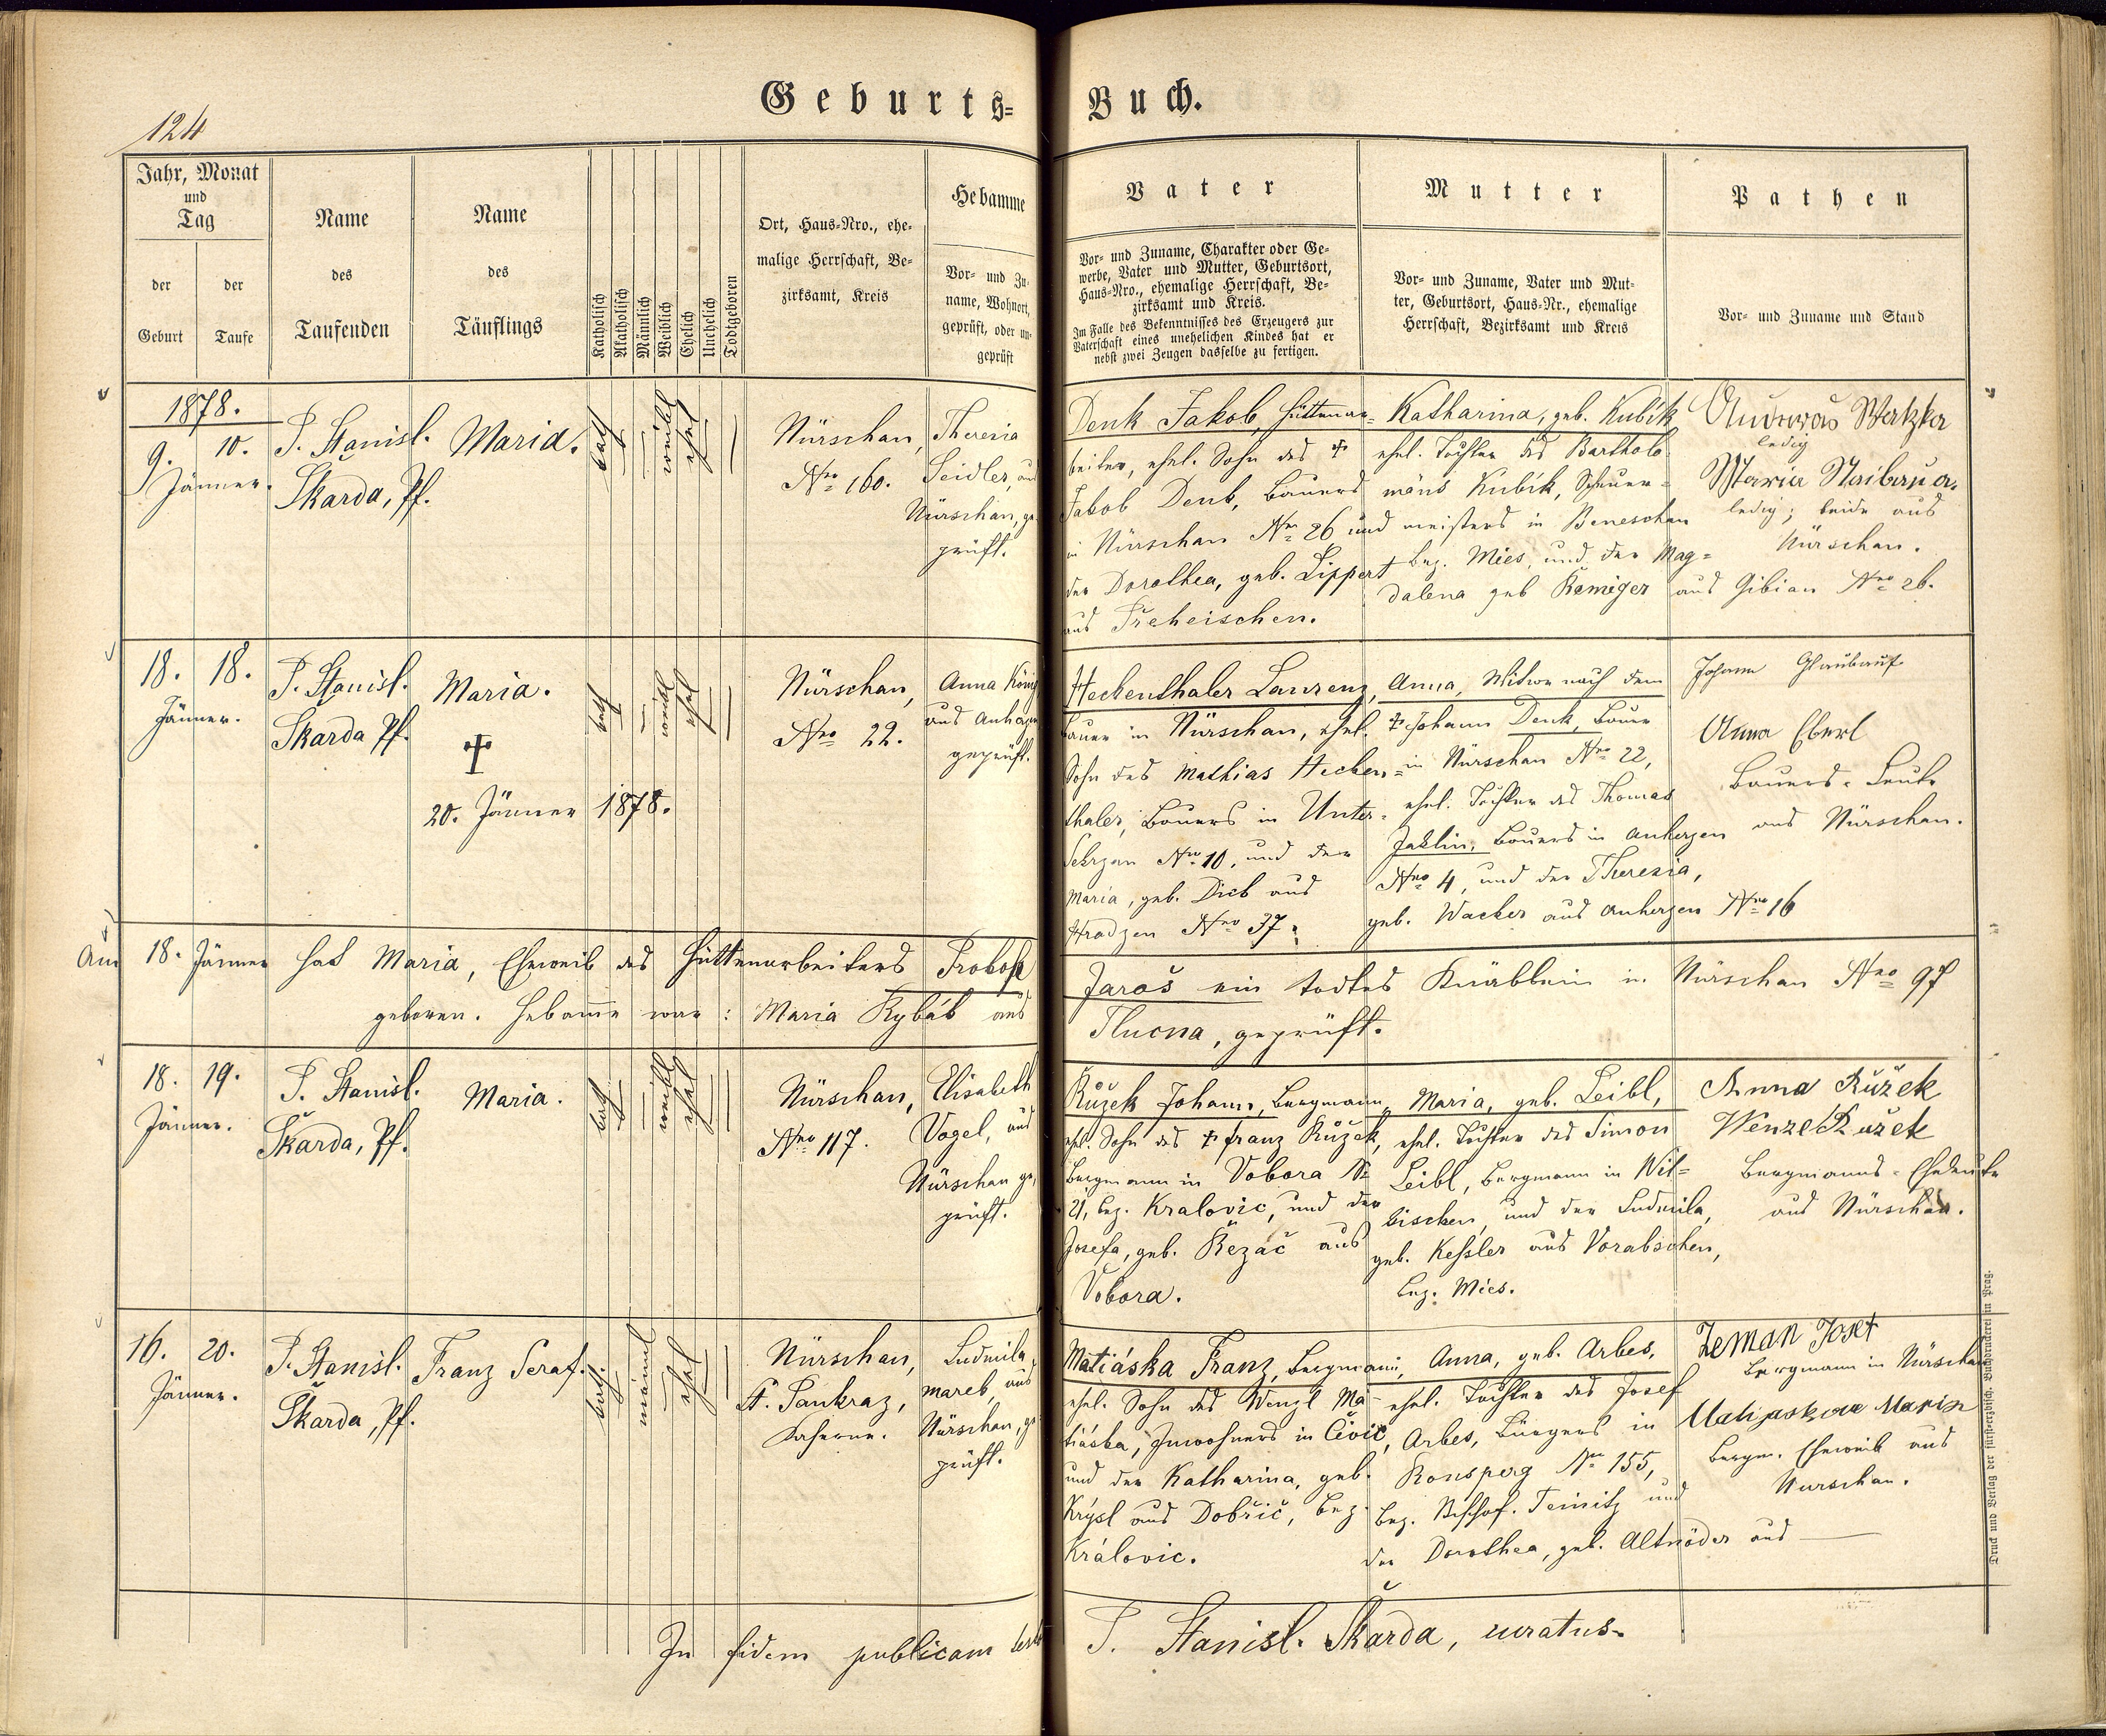 124
Geburts=Buch.
Jahr, Monat
und
Tag
der
Geburt
der
Taufe
Name
des
Taufenden
Name
des
Täuflings
Katholisch
Akatholisch
Männlich
Weiblich
Ehelich
Unehelich
Todtgeboren
Ort, Haus=Nro., ehe=
malige Herrschaft, Be=
zirksamt, Kreis
Hebamme
Vor= und Zu=
name, Wohnort,
geprüft, oder un=
geprüft
Vater
Vor= und Zuname, Charakter oder Ge=
werbe, Vater und Mutter, Geburtsort,
Haus=Nro., ehemalige Herrschaft, Be=
zirksamt und Kreis.
Im Falle des Bekenntnisses des Erzeugers zur
Vaterschaft eines unehelichen Kindes hat er
nebst zwei Zeugen dasselbe zu fertigen.
Mutter
Vor= und Zuname, Vater und Mut=
ter, Geburtsort, Haus=Nr., ehemalige
Herrschaft, Bezirksamt und Kreis
Pathen
Vor= und Zuname und Stand
1878.
9.
10.
Jänner.
P. Stanisl.
Škarda, Pf.
Maria.
kath
weibl
ehel
Nürschan,
Nro 160.
Theresia
Seidler, aus
Nürschan, ge-
prüft.
Denk Jakob, Hüttenar=
beiter, ehel. Sohn des †
Jakob Denk, Bauers
in Nürschan Nro 26 und
der Dorothea, geb. Lippert
aus Treheischen.
Katharina, geb. Kubik
ehel. Tochter des Bartholo-
mäus Kubik, Scheuer=
meisters in Beneschau
Bez. Mies, und der Mag=
dalena geb Remiger aus Gibian Nro 26.
Watzka
ledig
Maria
ledig; beide aus
Nürschan.
18.
18.
Jänner.
P. Stanisl.
Škarda Pf.
Maria.
†
20. Jänner 1878.
kath
weibl
ehel
Nürschan,
Nro 22.
Anna König
aus Anherzen
geprüft.
Heckenthaler Laurenz,
Bauer in Nürschan, ehel.
Sohn des Mathias Hecken=
thaler, Bauers in Unter=
Sekrzan Nro 10, und der
Maria, geb. Dick aus
Hradzen Nro 37.
Anna, Witwe nach dem
† Johann Denk, Bauer
in Nürschan Nro 22,
ehel. Tochter des Thomas
Jaklin, Bauers in Anherzen
Nro 4, und der Theresia,
geb. Wacker aus Anherzen Nro 16
Johann Glaubauf
Anna Eberl
Bauers=Leute
aus Nürschan.
Am 18. Jänner hat Maria, Eheweib des Hüttenarbeiters Prokop
Jaroš ein todtes Knäblein in Nürschan Nro 97
geboren. Hebamme war: Maria Rybák aus
Tlucna, geprüft.
18.
19.
Jänner.
P. Stanisl.
Škarda, Pf.
Maria.
kath
weibl
ehel
Nürschan,
Nro 117.
Elisabeth
Vogel, aus
Nürschan ge-
prüft.
Růžek Johann, Bergmann,
ehl. Sohn des † Franz Růžek,
Bergmann in Vobora No
21, Bez. Kralovic, und der
Josefa, geb. Řezáč aus
Vobora.
Maria, geb. Leibl,
ehel. Tochter des Simon
Leibl, Bergmann in Wil=
kischen, und der Ludmila,
geb. Kessler aus Vorabschen,
Bez. Mies.
Anna Růžek
Wenzel Růžek
Bergmanns=Eheleute
aus Nürschan.
16.
20.
Jänner.
P. Stanisl.
Škarda, Pf.
Franz Seraf.
kath.
männl
ehel
Nürschan,
St. Pankraz,
Kaserne.
Ludmila
Mareb, aus
Nürschan, ge-
prüft.
Matiáska Franz, Bergmann,
ehel. Sohn des Wenzl Ma-
tiáska, Inwohners in Čivic,
und der Katharina, geb.
Krýsl aus Dobřič, Bez.
Královic.
Anna, geb. Arbes,
ehel. Tochter des Josef
Arbes, Bürgers in
Ronsperg Nro 155,
Bez. Bischof. Teinitz und
der Dorothea, geb. Altnöder aus —
Zeman Josef
Bergmann in Nürschan
Marie
Bergm. Eheweib aus
Nürschan.
In fidem publicam
P. Stanisl. Škarda, curatus.
Druck und Verlag der fürst=erzbisch. Buchdruckerei in Prag.